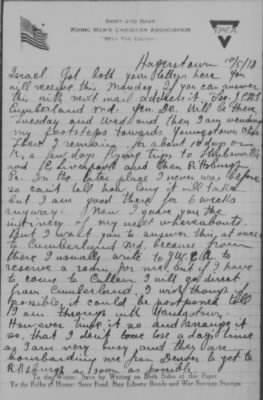 ARMY AND NAVY
YOUNG MEN'S CHRISTIAN ASSOCIATION
"WITH THE COLORS"
YMCA
Hagerstown 10/5/18
Israel. Got both your letters here you
will receive this Monday. If you can answer
this with next mail address it
Cumberland Md. Gen. De. Will be there
Tuesday and Wed and then I am wending
my footsteps towards Youngstown Ohio
There I remaining for about 10 days or
a few days flying trips to Steubenville
and E. Liverpool and then Pittsburgh
Pa. In the latter place I never was before
so can't tell how long it will take
but I am good there for 6 weeks
anyway. Now I gave you the
itinerary of my next whereabouts.
But I want you to answer this at once
to Cumberland Md. because from
there I usually write to Y.W.C.A. to
reserve a room for me, but if I have
to come to Cullen I will go direct
from Cumberland, I wish though if
possible, it could be postponed till
I am through with Youngstown.
However time it so and arrange it
so, that I don't lose a day's time
as I am very busy and they are
bombarding me from Denver to get to
Pittsburgh as soon as possible.
To the Writer: Save by Writing on Both Sides of this Paper
To the Folks at Home: Save Food, Buy Liberty Bonds and War Savings Stamps